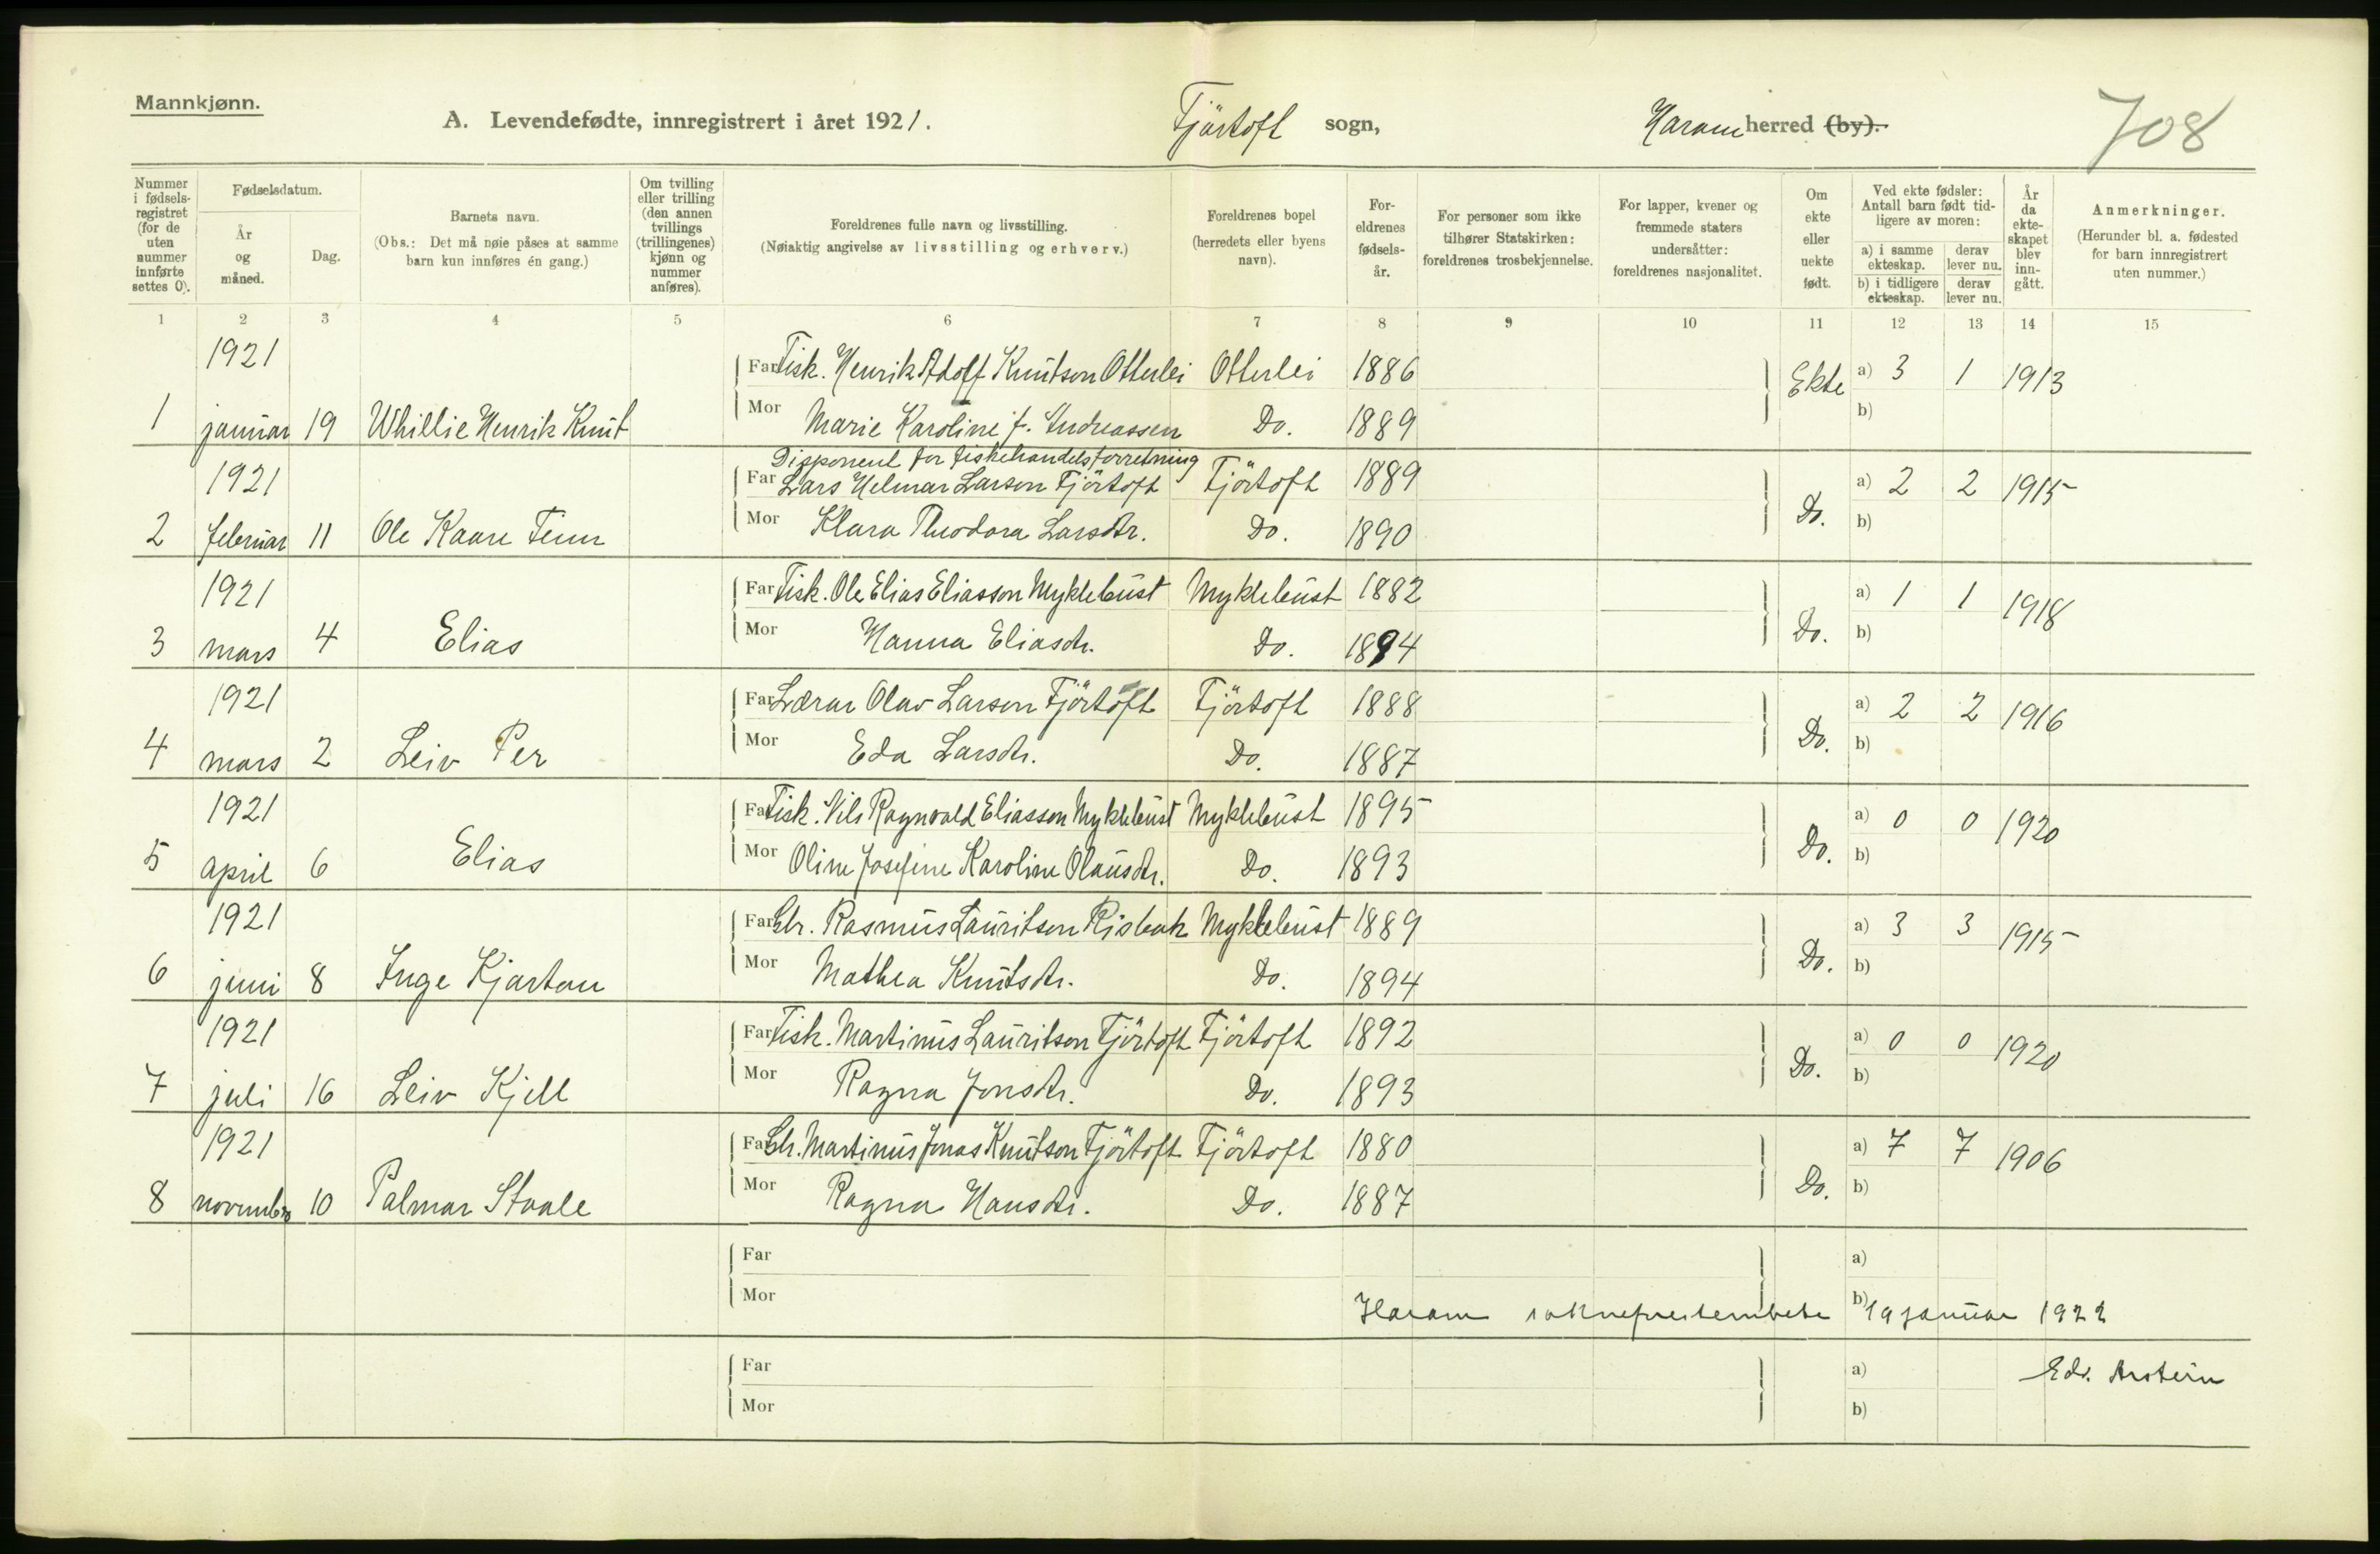 Mannkjønn.
A. Levendefødte, innregistrert i året 1921. Fjörtoft sogn, Haram herred (by). 708
Nummer i fødselsregistret (for de uten nummer innførte settes 0).
Fødselsdatum.
År og måned.
Dag.
Barnets navn.
(Obs.: Det må nøie påses at samme barn kun innføres én gang.)
Om tvilling eller trilling (den annen tvillings (trillingenes) kjønn og nummer anføres).
Foreldrenes fulle navn og livsstilling.
(Nøiaktig angivelse av livsstilling og erhverv.)
Foreldrenes bopel (herredets eller byens navn).
Foreldrenes fødselsår.
For personer som ikke tilhører Statskirken: foreldrenes trosbekjennelse.
For lapper, kvener og fremmede staters undersåtter: foreldrenes nasjonalitet.
Om ekte eller uekte født.
Ved ekte fødsler: Antall barn født tidligere av moren:
a) i samme ekteskap. derav lever nu.
b) i tidligere ekteskap. derav lever nu.
År da ekteskapet blev inngått.
Anmerkninger.
(Herunder bl. a. fødested for barn innregistrert uten nummer.)
1 2 3 4 5 6 7 8 9 10 11 12 13 14 15
1921 Far Fisk. Henrik Adolf Knutson Otterlei Otterlei 1886 Ekte a) 3 1 1913
1 januar 19 Whillie Henrik Knut Mor Marie Karoline f. Andreassen Do. 1889 b)
Disponent for fiskehandelsforretning
1921 Far Lars Helmar Larson Fjörtoft Fjörtoft 1889 Do. a) 2 2 1915
2 februar 11 Ole Kaare Finn Mor Klara Theodora Larsdtr. Do. 1890 b)
1921 Far Fisk. Ole Elias Eliasson Myklebust Myklebust 1882 Do. a) 1 1 1918
3 mars 4 Elias Mor Hanna Eliasdtr. Do. 1894 b)
1921 Far Lærar Olav Larson Fjörtoft Fjörtoft 1888 Do. a) 2 2 1916
4 mars 2 Leiv Per Mor Eda Larsdtr. Do. 1887 b)
1921 Far Fisk. Nils Ragnvald Eliasson Myklebust Myklebust 1895 Do. a) 0 0 1920
5 april 6 Elias Mor Oline Josefine Karoline Olausdtr. Do. 1893 b)
1921 Far Gbr. Rasmus Lauritson Risbak Myklebust 1889 Do. a) 3 3 1915
6 juni 8 Inge Kjartan Mor Mathea Knutsdtr. Do. 1894 b)
1921 Far Fisk. Martinus Lauritson Fjörtoft Fjörtoft 1892 Do. a) 0 0 1920
7 juli 16 Leiv Kjell Mor Ragna Jonsdtr. Do. 1893 b)
1921 Far Gbr. Martinus Jonas Knutson Fjörtoft Fjörtoft 1880 Do. a) 7 7 1906
8 november 10 Palmar Staale Mor Ragna Hansdtr. Do. 1887 b)
Far a)
Mor b)
Haram sokneprestembete 19 januar 1922
Far a) Edv. Arstein
Mor b)